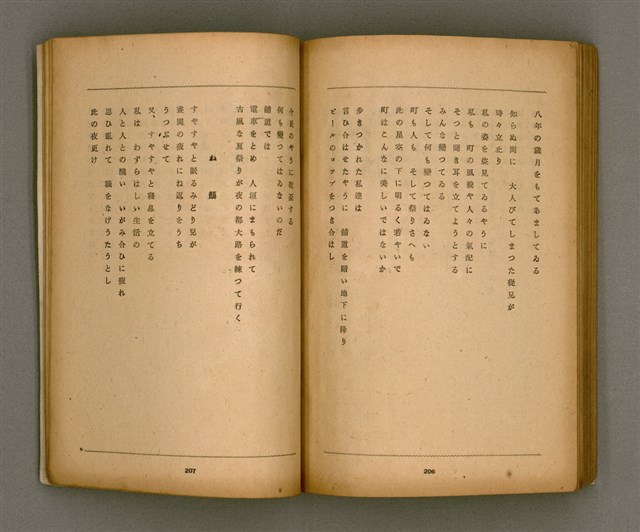 八年の歳月をもてあましてゐる
知らぬ間に　大人びてしまつた從兄が
時々立止り
私の姿を
私も　町の風貌や人々の氣配に
そつと聞き耳を立てようとする
みんな變つてゐる
そして何も變つてはゐない
町も人も　そして祭りさへも
此の星空の下に明るく若やいで
町はこんなに美しいではないか
歩きつかれた私達は
言ひ合はせたやうに　舗道を暗い地下に降り
ビールのコップをつき合はし
206
今更のやうに乾盃する
何も變つてはゐないのだ
舗道では
電車をとめ　人垣にまもられて
古風な夏祭りが夜の都大路を練つて行く
ね顔
すやすやと眠るみどり兒が
夜間の疲れにね返りをうち
うつぶせて
又、すやすやと寢息を立てる
私は　わずらはしい生活の
人と人との醜い　いがみ合ひに疲れ
思ひ亂れて　議をなげうたうとし
此の夜更け
207